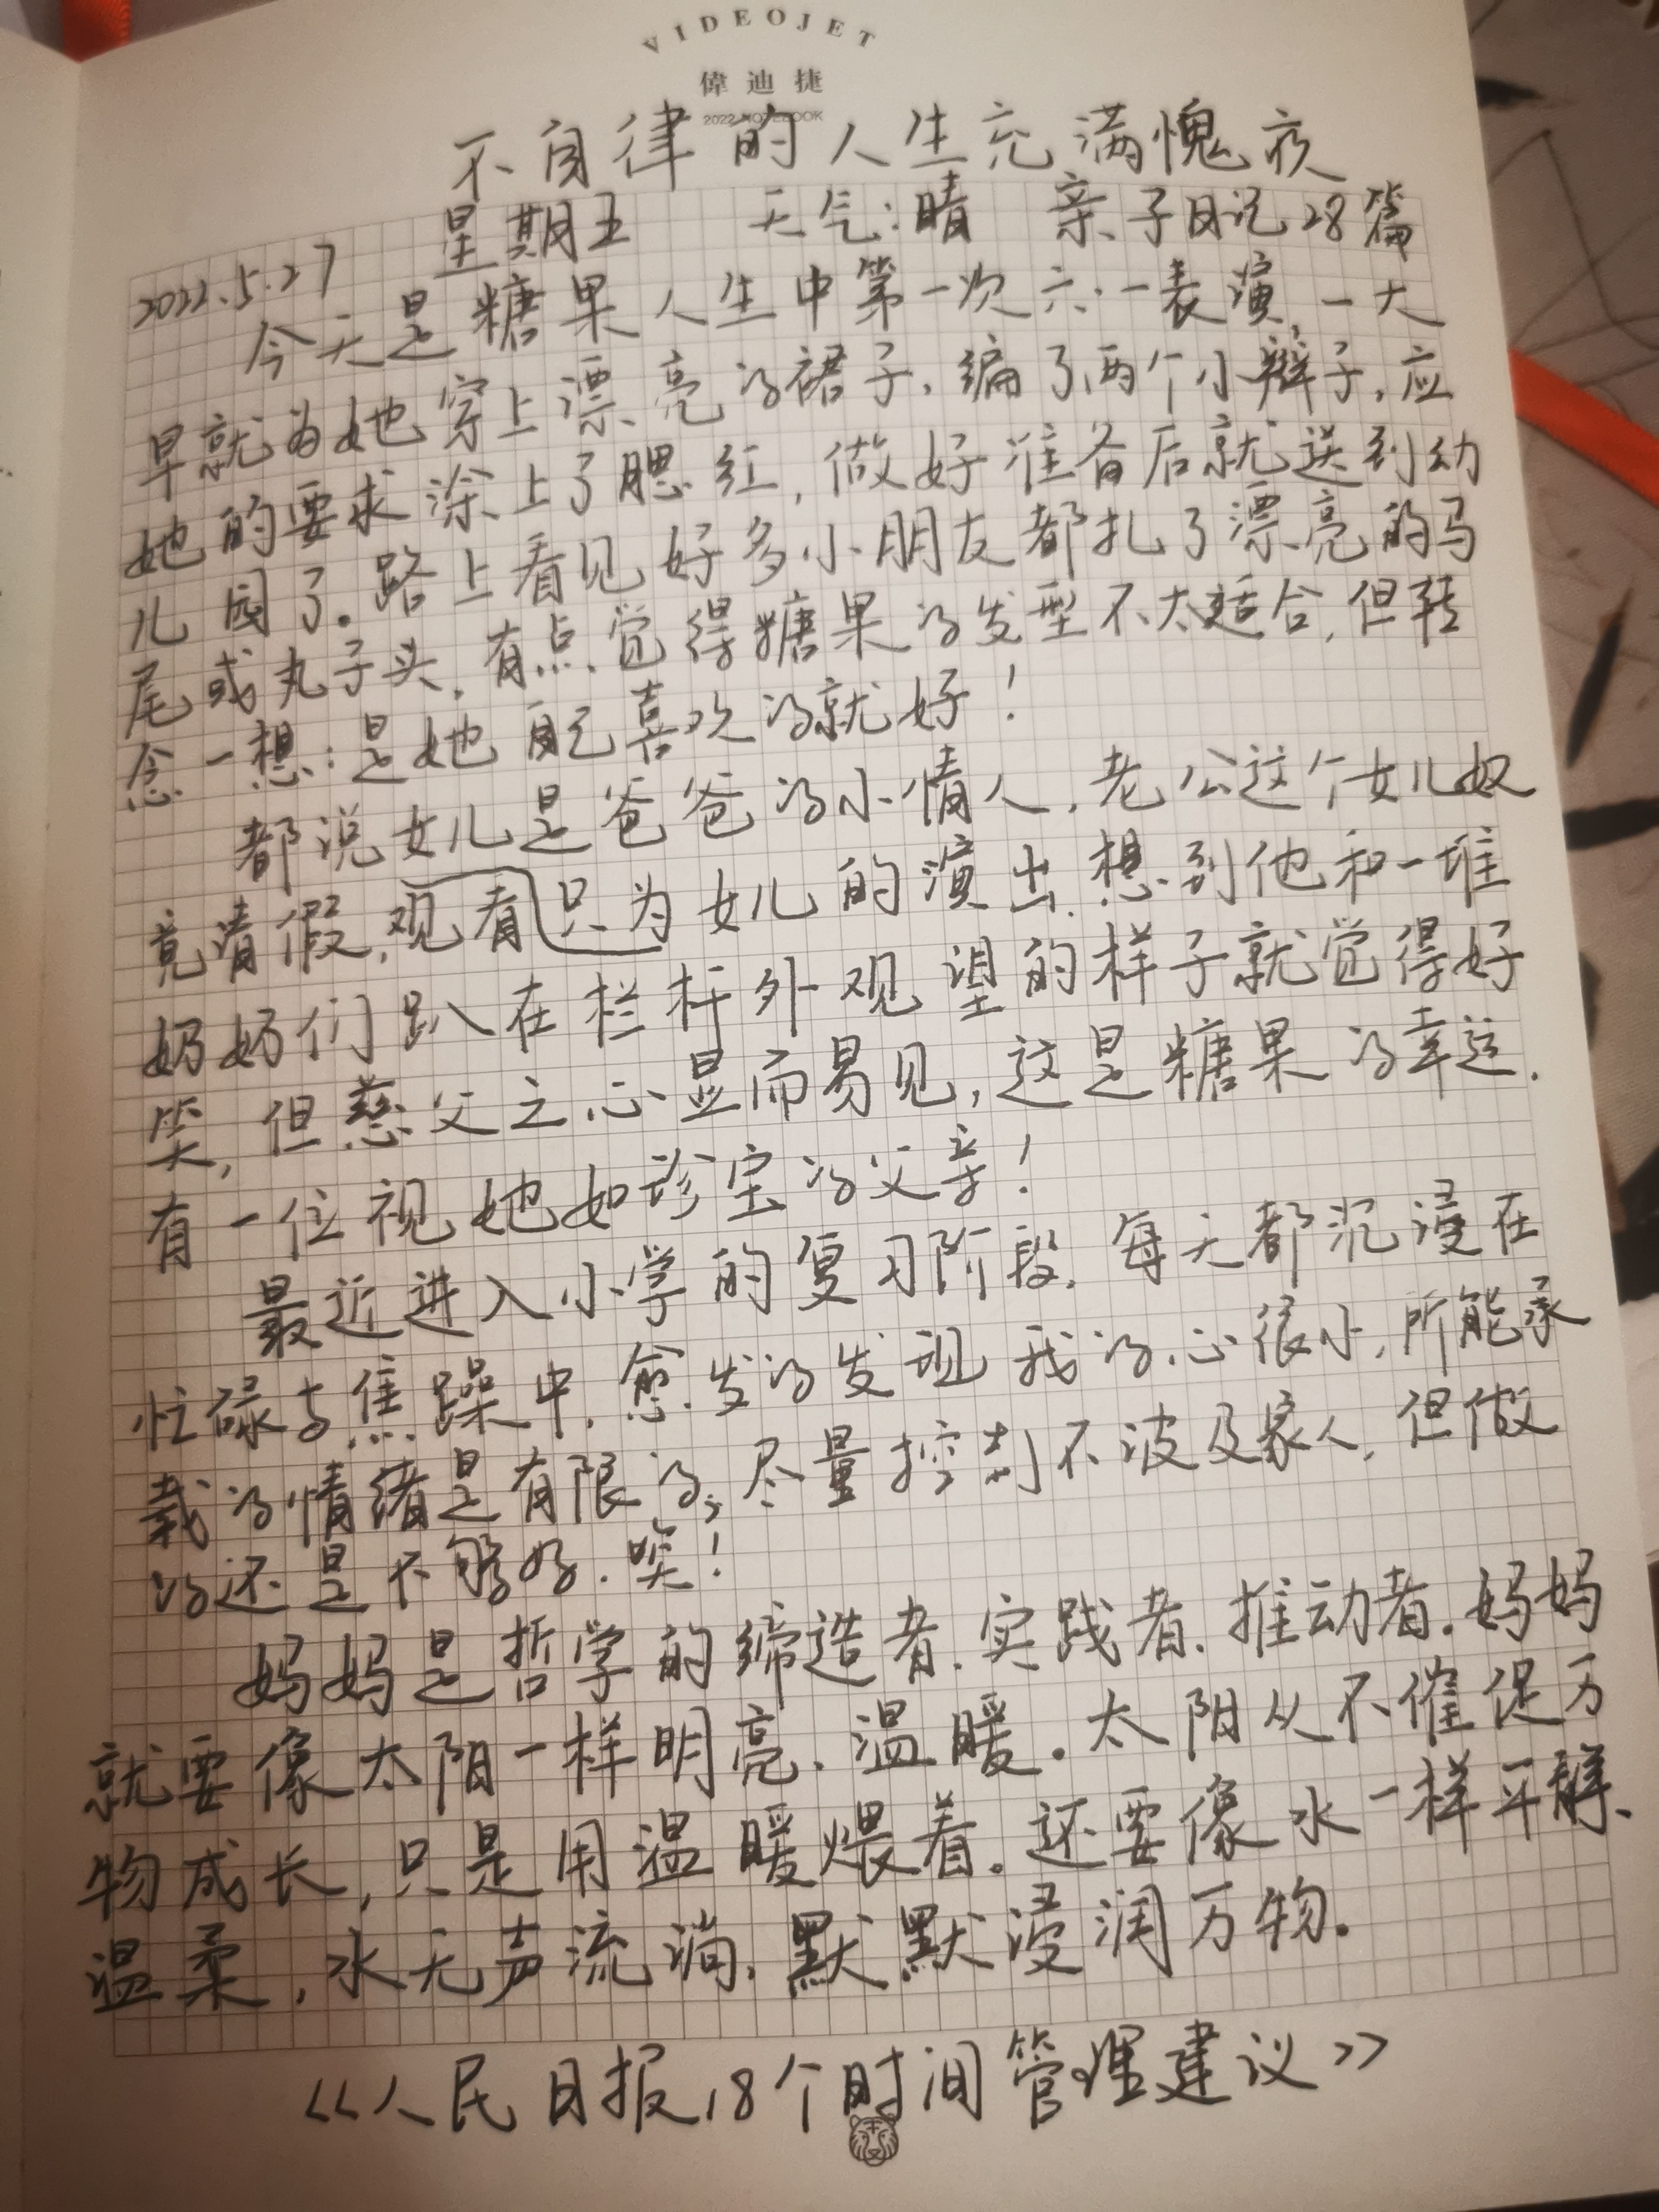 VIDEOJET
偉迪捷
2022 NOTEBOOK
不自律的人生充满愧疚
2022.5.27 星期五 天气:晴 亲子日记28篇
今天是糖果人生中第一次六·一表演,一大
早就为她穿上漂亮的裙子,编了两个小辫子,应
她的要求涂上了腮红,做好准备后就送到幼
儿园了。路上看见好多小朋友都扎了漂亮的马
尾或丸子头,有点觉得糖果的发型不太适合,但转
念一想:是她自己喜欢的就好!
都说女儿是爸爸的小情人,老公这个女儿奴
竟请假,观看只为女儿的演出,想到他和一堆
奶奶们趴在栏杆外观望的样子就觉得好
笑,但慈父之心显而易见,这是糖果的幸运.
有一位视她如珍宝的父亲!
最近进入小学的复习阶段,每天都沉浸在
忙碌与焦躁中,愈发的发现我的心很小,所能承
载的情绪是有限的,尽量控制不波及家人,但做
的还是不够好.唉!
妈妈是哲学的缔造者、实践者、推动者.妈妈
就要像太阳一样明亮、温暖。太阳从不催促万
物成长,只是用温暖煨着。还要像水一样平静、
温柔,水无声流淌,默默浸润万物.
《人民日报18个时间管理建议》